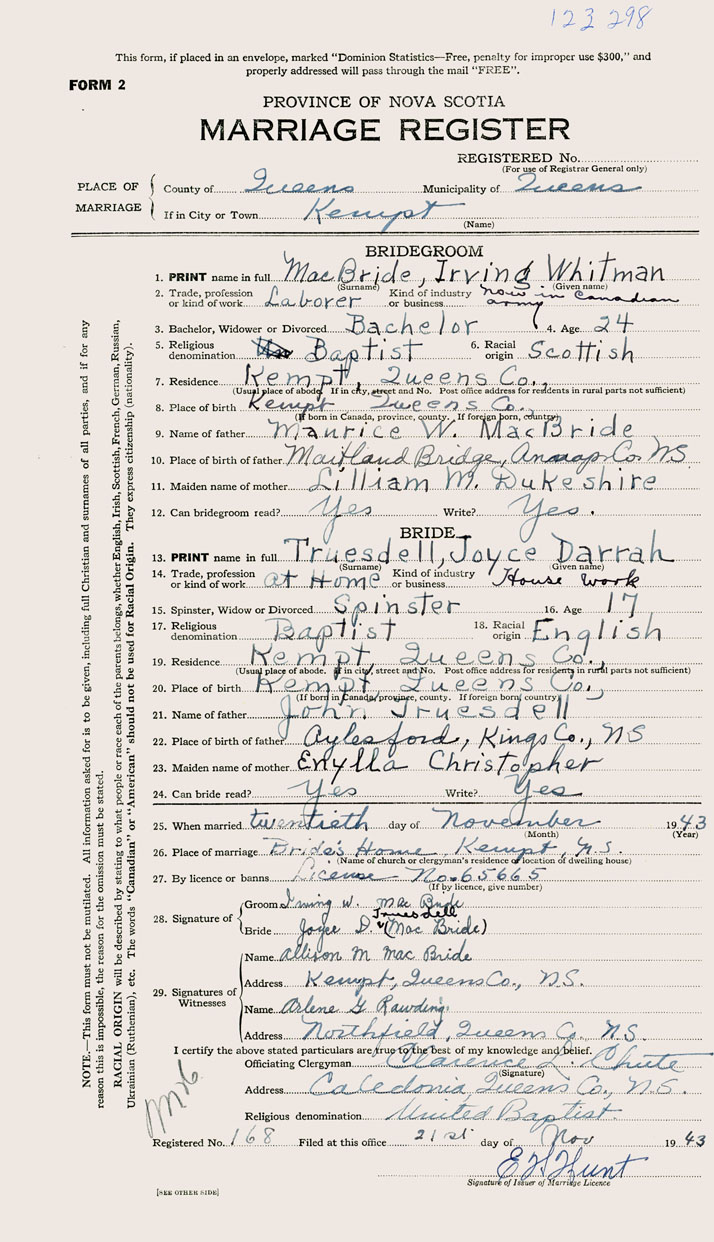 123 298
This form, if placed in an envelope, marked "Dominion Statistics—Free, penalty for improper use $300," and
properly addressed will pass through the mail "FREE".
FORM 2
PROVINCE OF NOVA SCOTIA
MARRIAGE REGISTER
REGISTERED No.
(For use of Registrar General only)
PLACE OF MARRIAGE
County of Queens Municipality of Queens
If in City or Town Kempt
(Name)
BRIDEGROOM
1. PRINT name in full MacBride, Irving Whitman
(Surname) (Given name)
2. Trade, profession or kind of work Laborer Kind of industry or business now in Canadian army
3. Bachelor, Widower or Divorced Bachelor 4. Age 24
5. Religious denomination Baptist 6. Racial origin Scottish
7. Residence Kempt, Queens Co.,
(Usual place of abode. If in city, street and No. Post office address for residents in rural parts not sufficient)
8. Place of birth Kempt Queens Co.,
(If born in Canada, province, county. If foreign born, country)
9. Name of father Maurice W. MacBride
10. Place of birth of father Maitland Bridge, Annap Co. N.S.
11. Maiden name of mother Lilliam M. Dukeshire
12. Can bridegroom read? Yes Write? Yes.
BRIDE
13. PRINT name in full Truesdell, Joyce Darrah
(Surname) (Given name)
14. Trade, profession or kind of work at Home Kind of industry or business House work
15. Spinster, Widow or Divorced Spinster 16. Age 17
17. Religious denomination Baptist 18. Racial origin English
19. Residence Kempt, Queens Co.,
(Usual place of abode. If in city, street and No. Post office address for residents in rural parts not sufficient)
20. Place of birth Kempt Queens Co.,
(If born in Canada, province, county. If foreign born, country)
21. Name of father John Truesdell
22. Place of birth of father Aylesford, Kings Co., NS
23. Maiden name of mother Enylla Christopher
24. Can bride read? Yes Write? Yes
25. When married twentieth day of November 1943
(Month) (Year)
26. Place of marriage Bride's Home, Kempt, N.S.
(Name of church or clergyman's residence or location of dwelling house)
27. By licence or banns License No. 65665
(If by licence, give number)
28. Signature of
Groom Irving W. Mac Bride
Truesdell
Bride Joyce D. (Mac Bride)
29. Signatures of Witnesses
Name Allison M Mac Bride
Address Kempt, Queens Co., N.S.
Name Arlene G Rawding
Address Northfield, Queens Co. N.S.
I certify the above stated particulars are true to the best of my knowledge and belief.
Officiating Clergyman Clarence L. Chute
(Signature)
Address Caledonia, Queens Co., N.S.
Religious denomination United Baptist
Registered No. 168 Filed at this office 21st day of Nov 1943
E H Hunt
Signature of Issuer of Marriage Licence
[SEE OTHER SIDE]
NOTE.—This form must not be mutilated. All information asked for is to be given, including full Christian and surnames of all parties, and if for any
reason this is impossible, the reason for the omission must be stated.
RACIAL ORIGIN will be described by stating to what people or race each of the parents belongs, whether English, Irish, Scottish, French, German, Russian,
Ukrainian (Ruthenian), etc. The words "Canadian" or "American" should not be used for Racial Origin. They express citizenship (nationality).